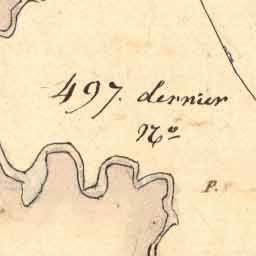 497. dernier
No
P.